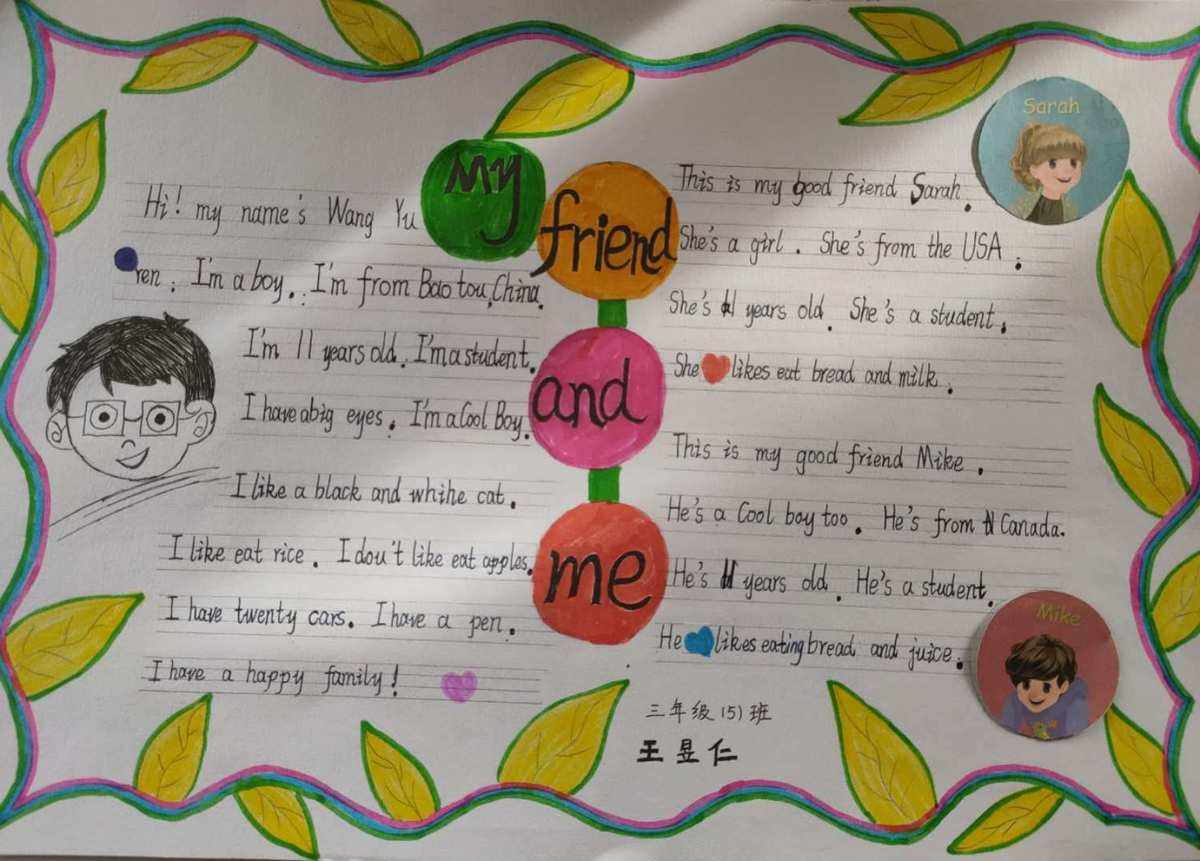 My
friend
and
me
Hi! my name's Wang Yu
ren. I'm a boy. I'm from Bao tou, China.
I'm 11 years old. I'm a student.
I have a big eyes. I'm a Cool Boy.
I like a black and whihe cat.
I like eat rice. I dou't like eat apples.
I have twenty cars. I have a pen.
I have a happy family!
Sarah
This is my good friend Sarah.
She's a girl. She's from the USA.
She's 11 years old. She's a student.
She likes eat bread and milk.
This is my good friend Mike.
He's a Cool boy too. He's from Canada.
He's 11 years old. He's a student.
He likes eating bread and juice.
Mike
三年级(5)班
王昱仁